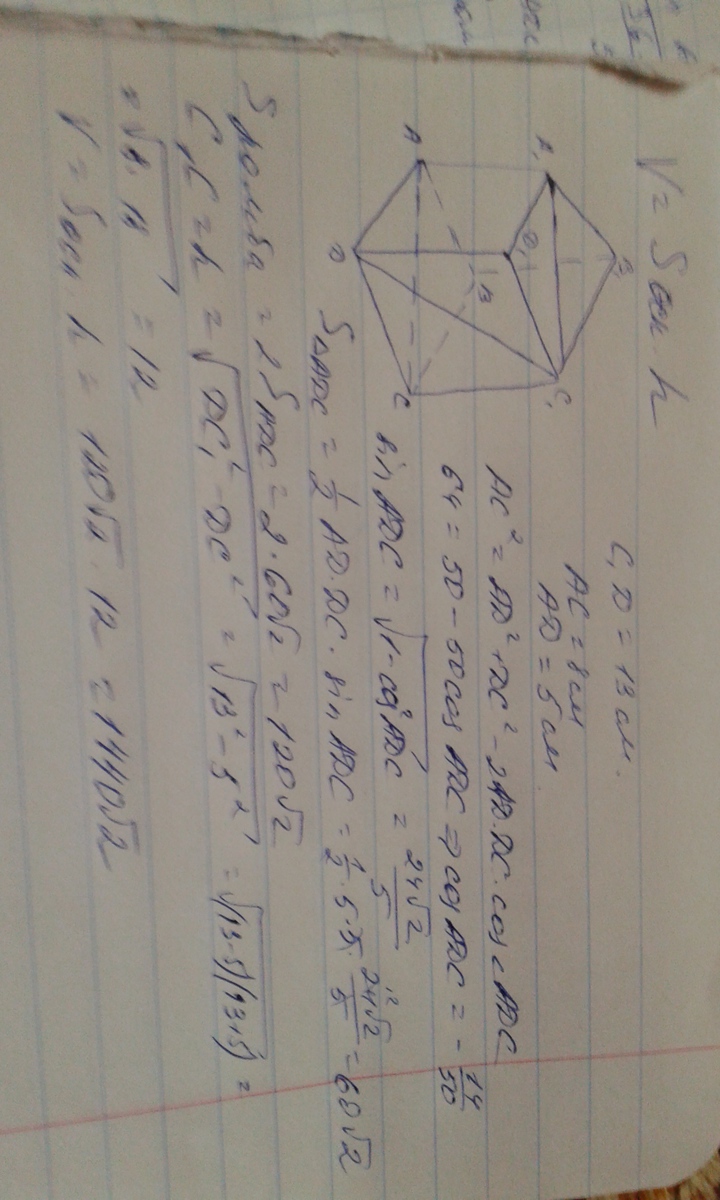 V = Sосн · h
C₁D = 13 см.
AC = 8 см
AD = 5 см
A₁
B₁
C₁
D₁
A
B
C
D
AC² = AD² + DC² - 2AD·DC·cos∠ADC
64 = 50 - 50 cos ADC ⇒ cos ADC = - 14/50
sin ADC = √1 - cos² ADC = 24√2/5
S△ADC = 1/2 AD·DC·sin ADC = 1/2 · 5 · 5 · 24√2/5 = 60√2
12
Sромба = 2 SADC = 2·60√2 = 120√2
C₁C = h = √DC₁² - DC² = √13² - 5² = √(13-5)(13+5) =
= √8·18 = 12
V = Sосн · h = 120√2 · 12 = 1440√2